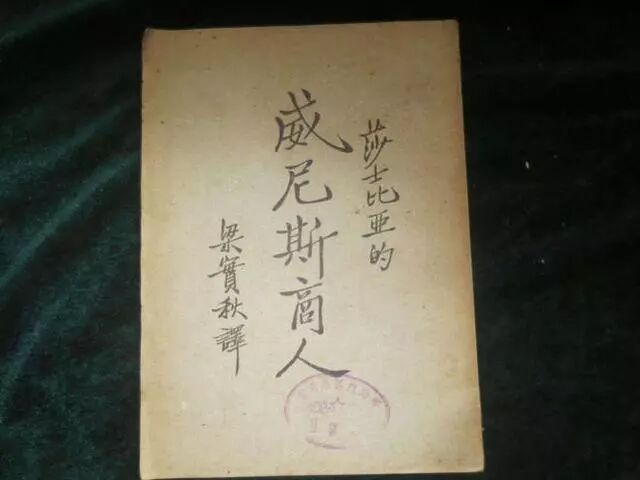 莎士比亚的
威尼斯商人
梁實秋譯